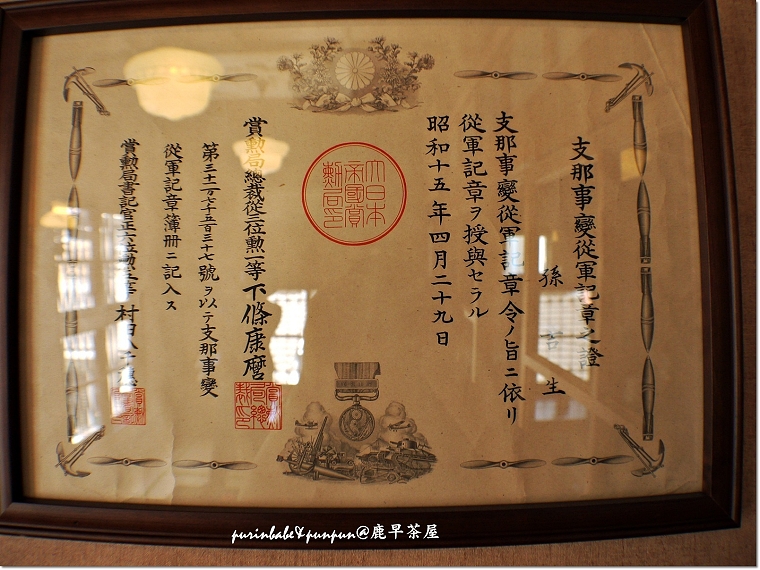 支那事變從軍記章之證
孫 吉 生
支那事變從軍記章令ノ旨ニ依リ
從軍記章ヲ授與セラル
昭和十五年四月二十九日
大日本
帝國賞
勳局印
賞勲局總裁從三位勲一等下條康麿
第三十二万七千五百三十七號ヲ以テ支那事變
從軍記章簿冊ニ記入ス
賞勲局書記官正六位勲五等村田八千穂
purinbabe&punpun@鹿早茶屋